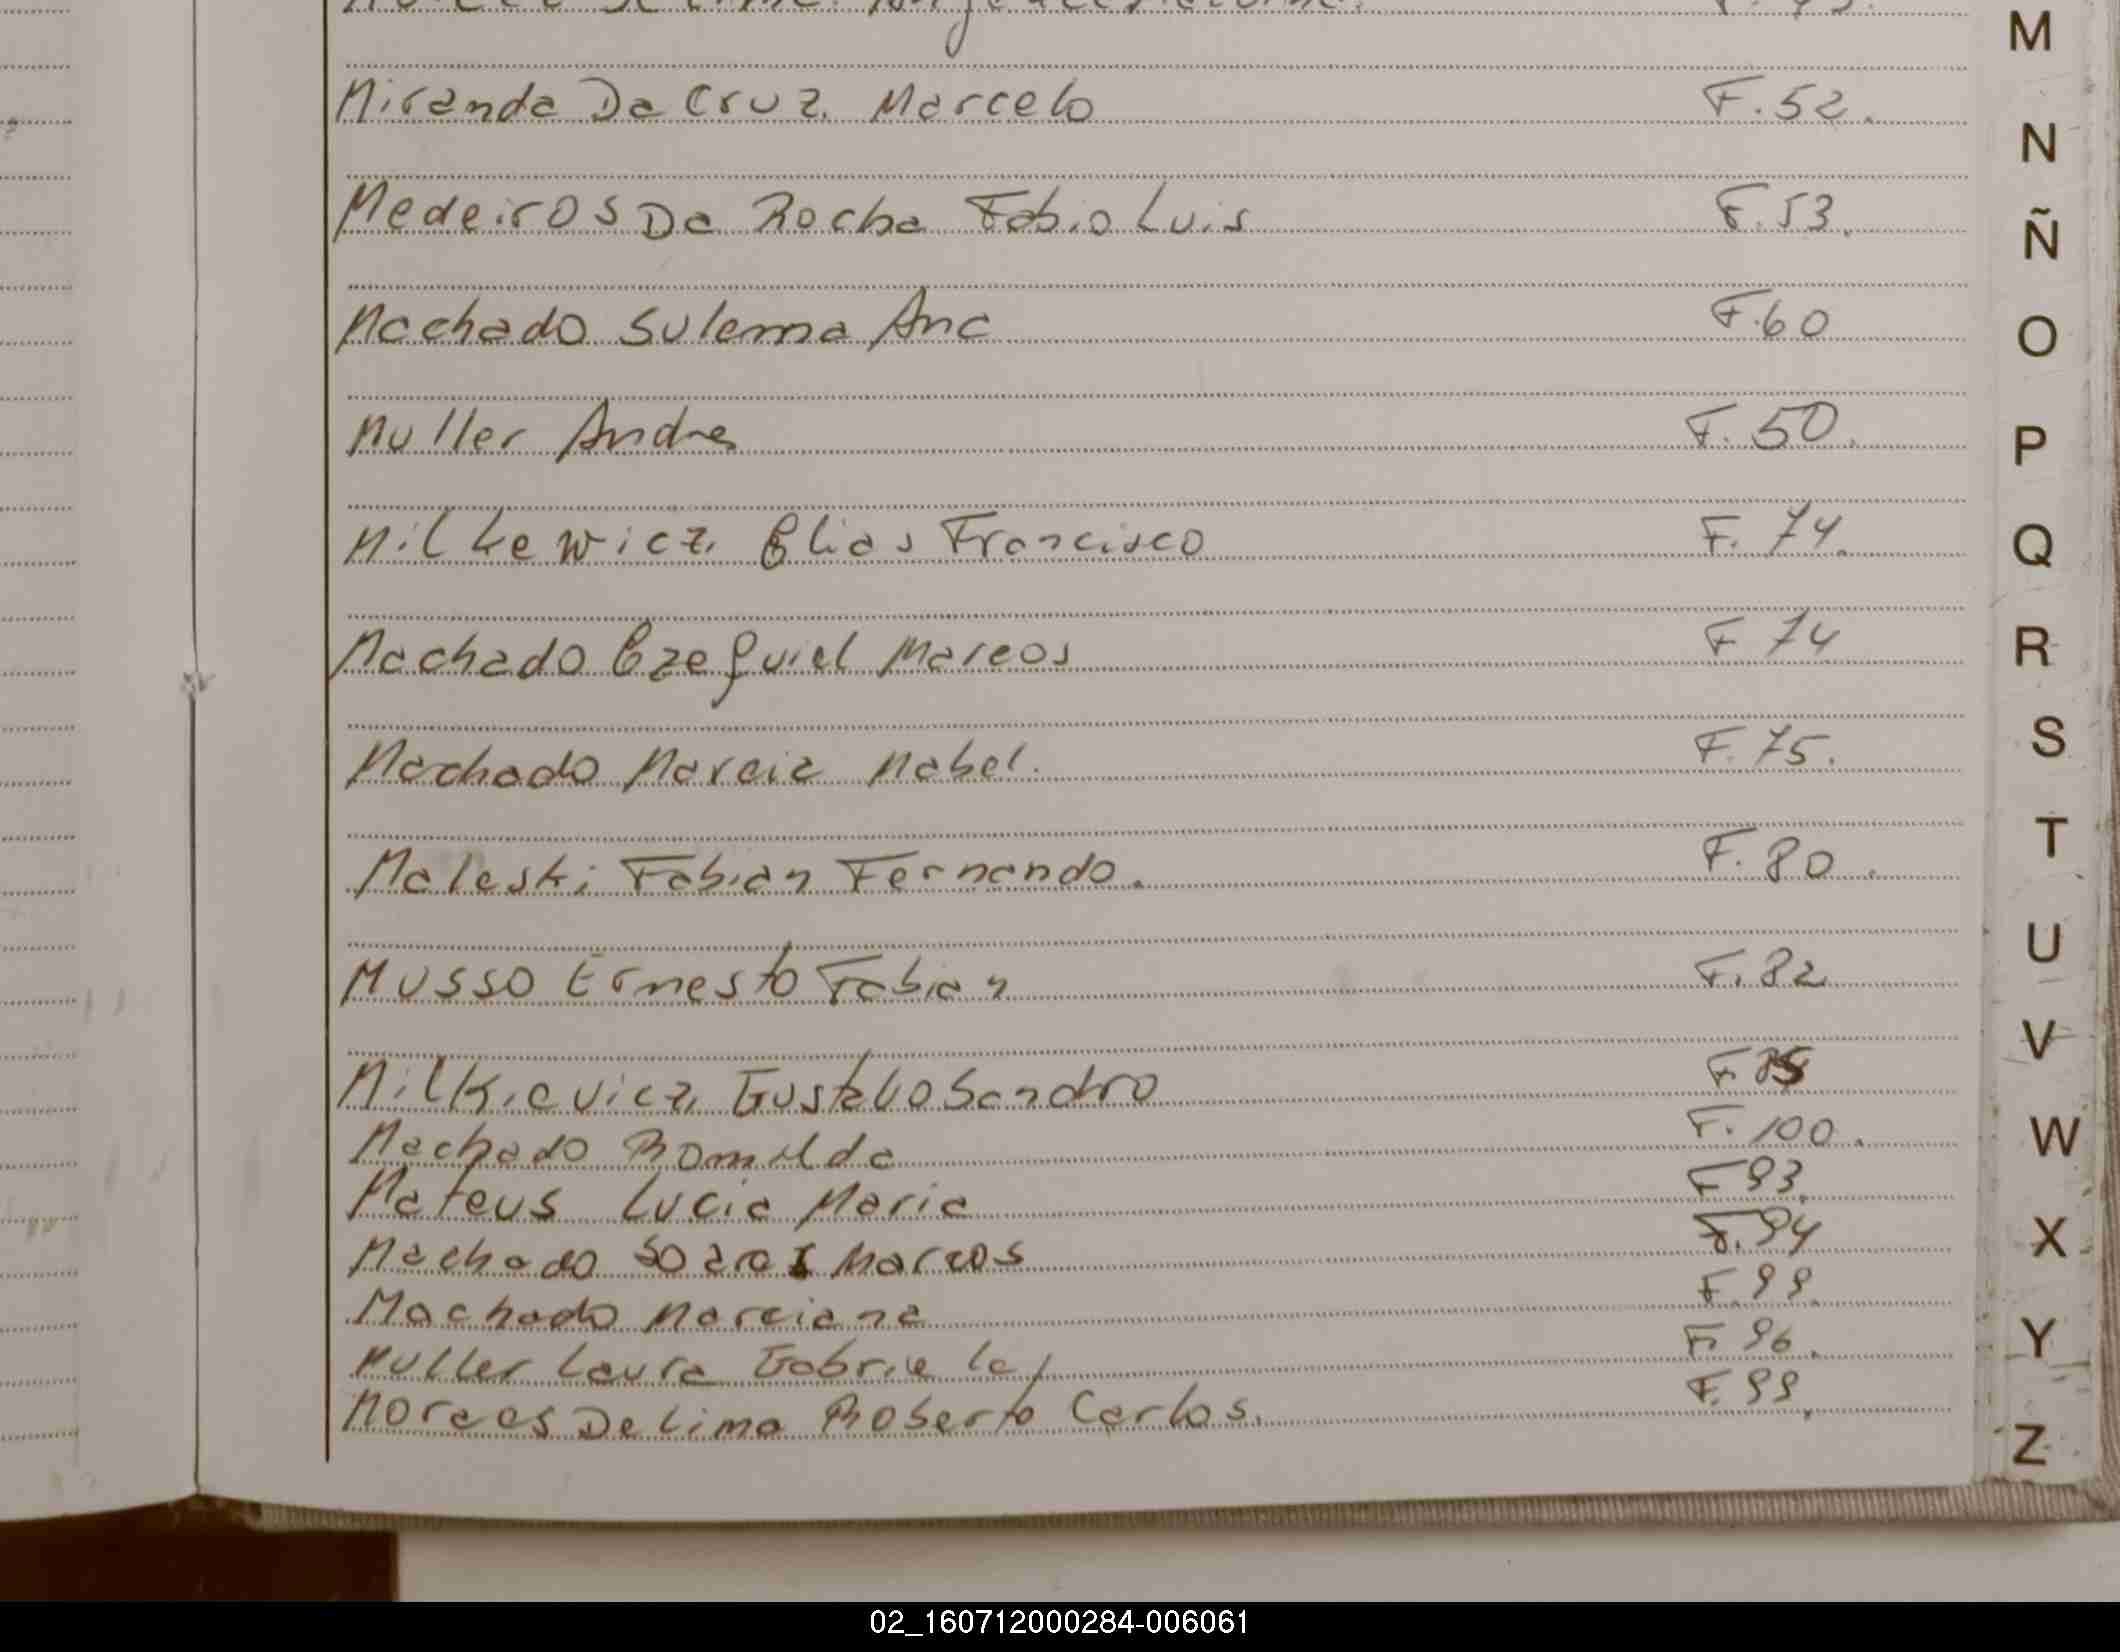 Miranda Da Cruz Marcelo F. 52.
Medeiros Da Rocha Fabio Luis F. 53.
Machado Sulema Ana F. 60
Muller Andres F. 50.
Milkewicz Elias Francisco F. 74.
Machado Ezequiel Marcos F 74
Machado Marcia Mabel. F. 75.
Maleski Fabian Fernando. F. 80.
Musso Ernesto Fabian F. 82
Milkievicz Gustavo Sandro F.
Machado Romilda F. 100.
Mateus Lucia Maria F 93.
Machado Marcos F. 94
Machado Marciana F. 99.
Muller Laura Gabriela F. 96.
Moraes De Lima Roberto Carlos. F. 99.
M
N
Ñ
O
P
Q
R
S
T
U
V
W
X
Y
Z
02_160712000284-006061